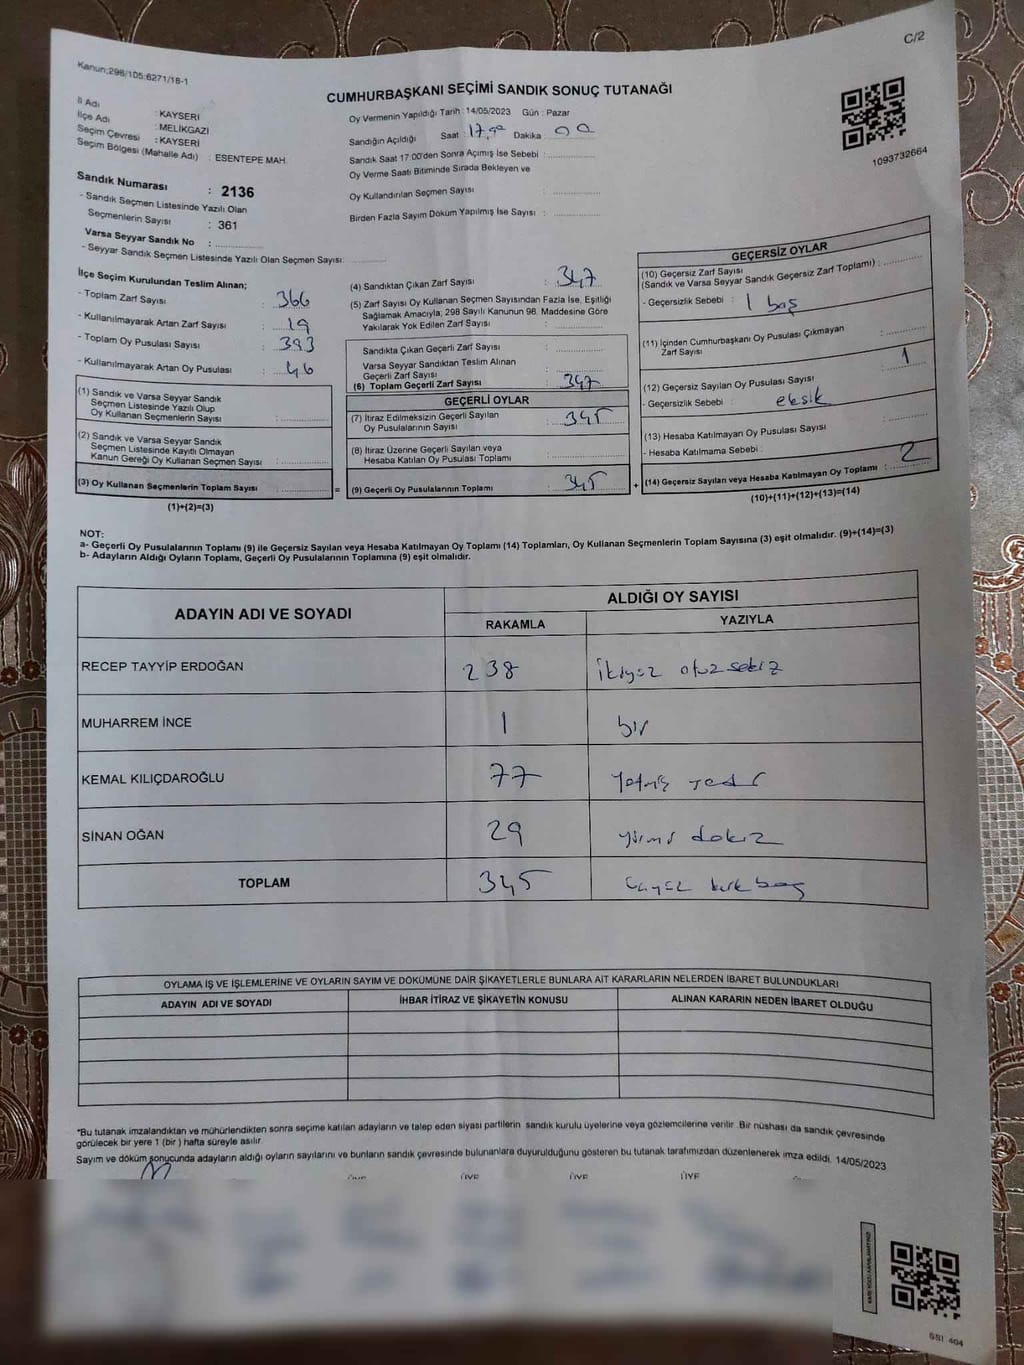 C/2
Kanun:298/105:6271/18-1
CUMHURBAŞKANI SEÇİMİ SANDIK SONUÇ TUTANAĞI
İl Adı : KAYSERİ
İlçe Adı : MELİKGAZİ
Seçim Çevresi : KAYSERİ
Seçim Bölgesi (Mahalle Adı) : ESENTEPE MAH.
Oy Vermenin Yapıldığı Tarih : 14/05/2023 Gün : Pazar
Sandığın Açıldığı Saat : 17.00 Dakika 00
Sandık Saat 17:00'den Sonra Açımış İse Sebebi :
Oy Verme Saati Bitiminde Sırada Bekleyen ve
Oy Kullandırılan Seçmen Sayısı :
Birden Fazla Sayım Döküm Yapılmış İse Sayısı :
1093732664
Sandık Numarası : 2136
- Sandık Seçmen Listesinde Yazılı Olan
Seçmenlerin Sayısı : 361
Varsa Seyyar Sandık No :
- Seyyar Sandık Seçmen Listesinde Yazılı Olan Seçmen Sayısı:
İlçe Seçim Kurulundan Teslim Alınan;
- Toplam Zarf Sayısı : 366
- Kullanılmayarak Artan Zarf Sayısı : 19
- Toplam Oy Pusulası Sayısı : 393
- Kullanılmayarak Artan Oy Pusulası : 46
(1) Sandık ve Varsa Seyyar Sandık
Seçmen Listesinde Yazılı Olup
Oy Kullanan Seçmenlerin Sayısı :
(2) Sandık ve Varsa Seyyar Sandık
Seçmen Listesinde Kayıtlı Olmayan
Kanun Gereği Oy Kullanan Seçmen Sayısı :
(3) Oy Kullanan Seçmenlerin Toplam Sayısı :
(1)+(2)=(3)
(4) Sandıktan Çıkan Zarf Sayısı : 347
(5) Zarf Sayısı Oy Kullanan Seçmen Sayısından Fazla İse, Eşitliği
Sağlamak Amacıyla, 298 Sayılı Kanunun 98. Maddesine Göre
Yakılarak Yok Edilen Zarf Sayısı :
Sandıkta Çıkan Geçerli Zarf Sayısı :
Varsa Seyyar Sandıktan Teslim Alınan
Geçerli Zarf Sayısı :
(6) Toplam Geçerli Zarf Sayısı : 347
GEÇERLİ OYLAR
(7) İtiraz Edilmeksizin Geçerli Sayılan
Oy Pusulalarının Sayısı : 345
(8) İtiraz Üzerine Geçerli Sayılan veya
Hesaba Katılan Oy Pusulası Toplamı :
= (9) Geçerli Oy Pusulalarının Toplamı : 345
GEÇERSİZ OYLAR
(10) Geçersiz Zarf Sayısı
(Sandık ve Varsa Seyyar Sandık Geçersiz Zarf Toplamı) :
- Geçersizlik Sebebi : 1 boş
(11) İçinden Cumhurbaşkanı Oy Pusulası Çıkmayan
Zarf Sayısı :
(12) Geçersiz Sayılan Oy Pusulası Sayısı : 1
- Geçersizlik Sebebi : eksik
(13) Hesaba Katılmayan Oy Pusulası Sayısı :
- Hesaba Katılmama Sebebi :
+ (14) Geçersiz Sayılan veya Hesaba Katılmayan Oy Toplamı : 2
(10)+(11)+(12)+(13)=(14)
NOT:
a- Geçerli Oy Pusulalarının Toplamı (9) ile Geçersiz Sayılan veya Hesaba Katılmayan Oy Toplamı (14) Toplamları, Oy Kullanan Seçmenlerin Toplam Sayısına (3) eşit olmalıdır. (9)+(14)=(3)
b- Adayların Aldığı Oyların Toplamı, Geçerli Oy Pusulalarının Toplamına (9) eşit olmalıdır.
ADAYIN ADI VE SOYADI
ALDIĞI OY SAYISI
RAKAMLA YAZIYLA
RECEP TAYYİP ERDOĞAN 238 ikiyüz otuz sekiz
MUHARREM İNCE 1 bir
KEMAL KILIÇDAROĞLU 77 yetmiş yedi
SİNAN OĞAN 29 yirmi dokuz
TOPLAM 345 üçyüz kırk beş
OYLAMA İŞ VE İŞLEMLERİNE VE OYLARIN SAYIM VE DÖKÜMÜNE DAİR ŞİKAYETLERLE BUNLARA AİT KARARLARIN NELERDEN İBARET BULUNDUKLARI
ADAYIN ADI VE SOYADI İHBAR İTİRAZ VE ŞİKAYETİN KONUSU ALINAN KARARIN NEDEN İBARET OLDUĞU
*Bu tutanak imzalandıktan ve mühürlendikten sonra seçime katılan adayların ve talep eden siyasi partilerin sandık kurulu üyelerine veya gözlemcilerine verilir. Bir nüshası da sandık çevresinde
görülecek bir yere 1 (bir ) hafta süreyle asılır.
Sayım ve döküm sonucunda adayların aldığı oyların sayılarını ve bunların sandık çevresinde bulunanlara duyurulduğunu gösteren bu tutanak tarafımızdan düzenlenerek imza edildi. 14/05/2023
ÜYE ÜYE ÜYE ÜYE